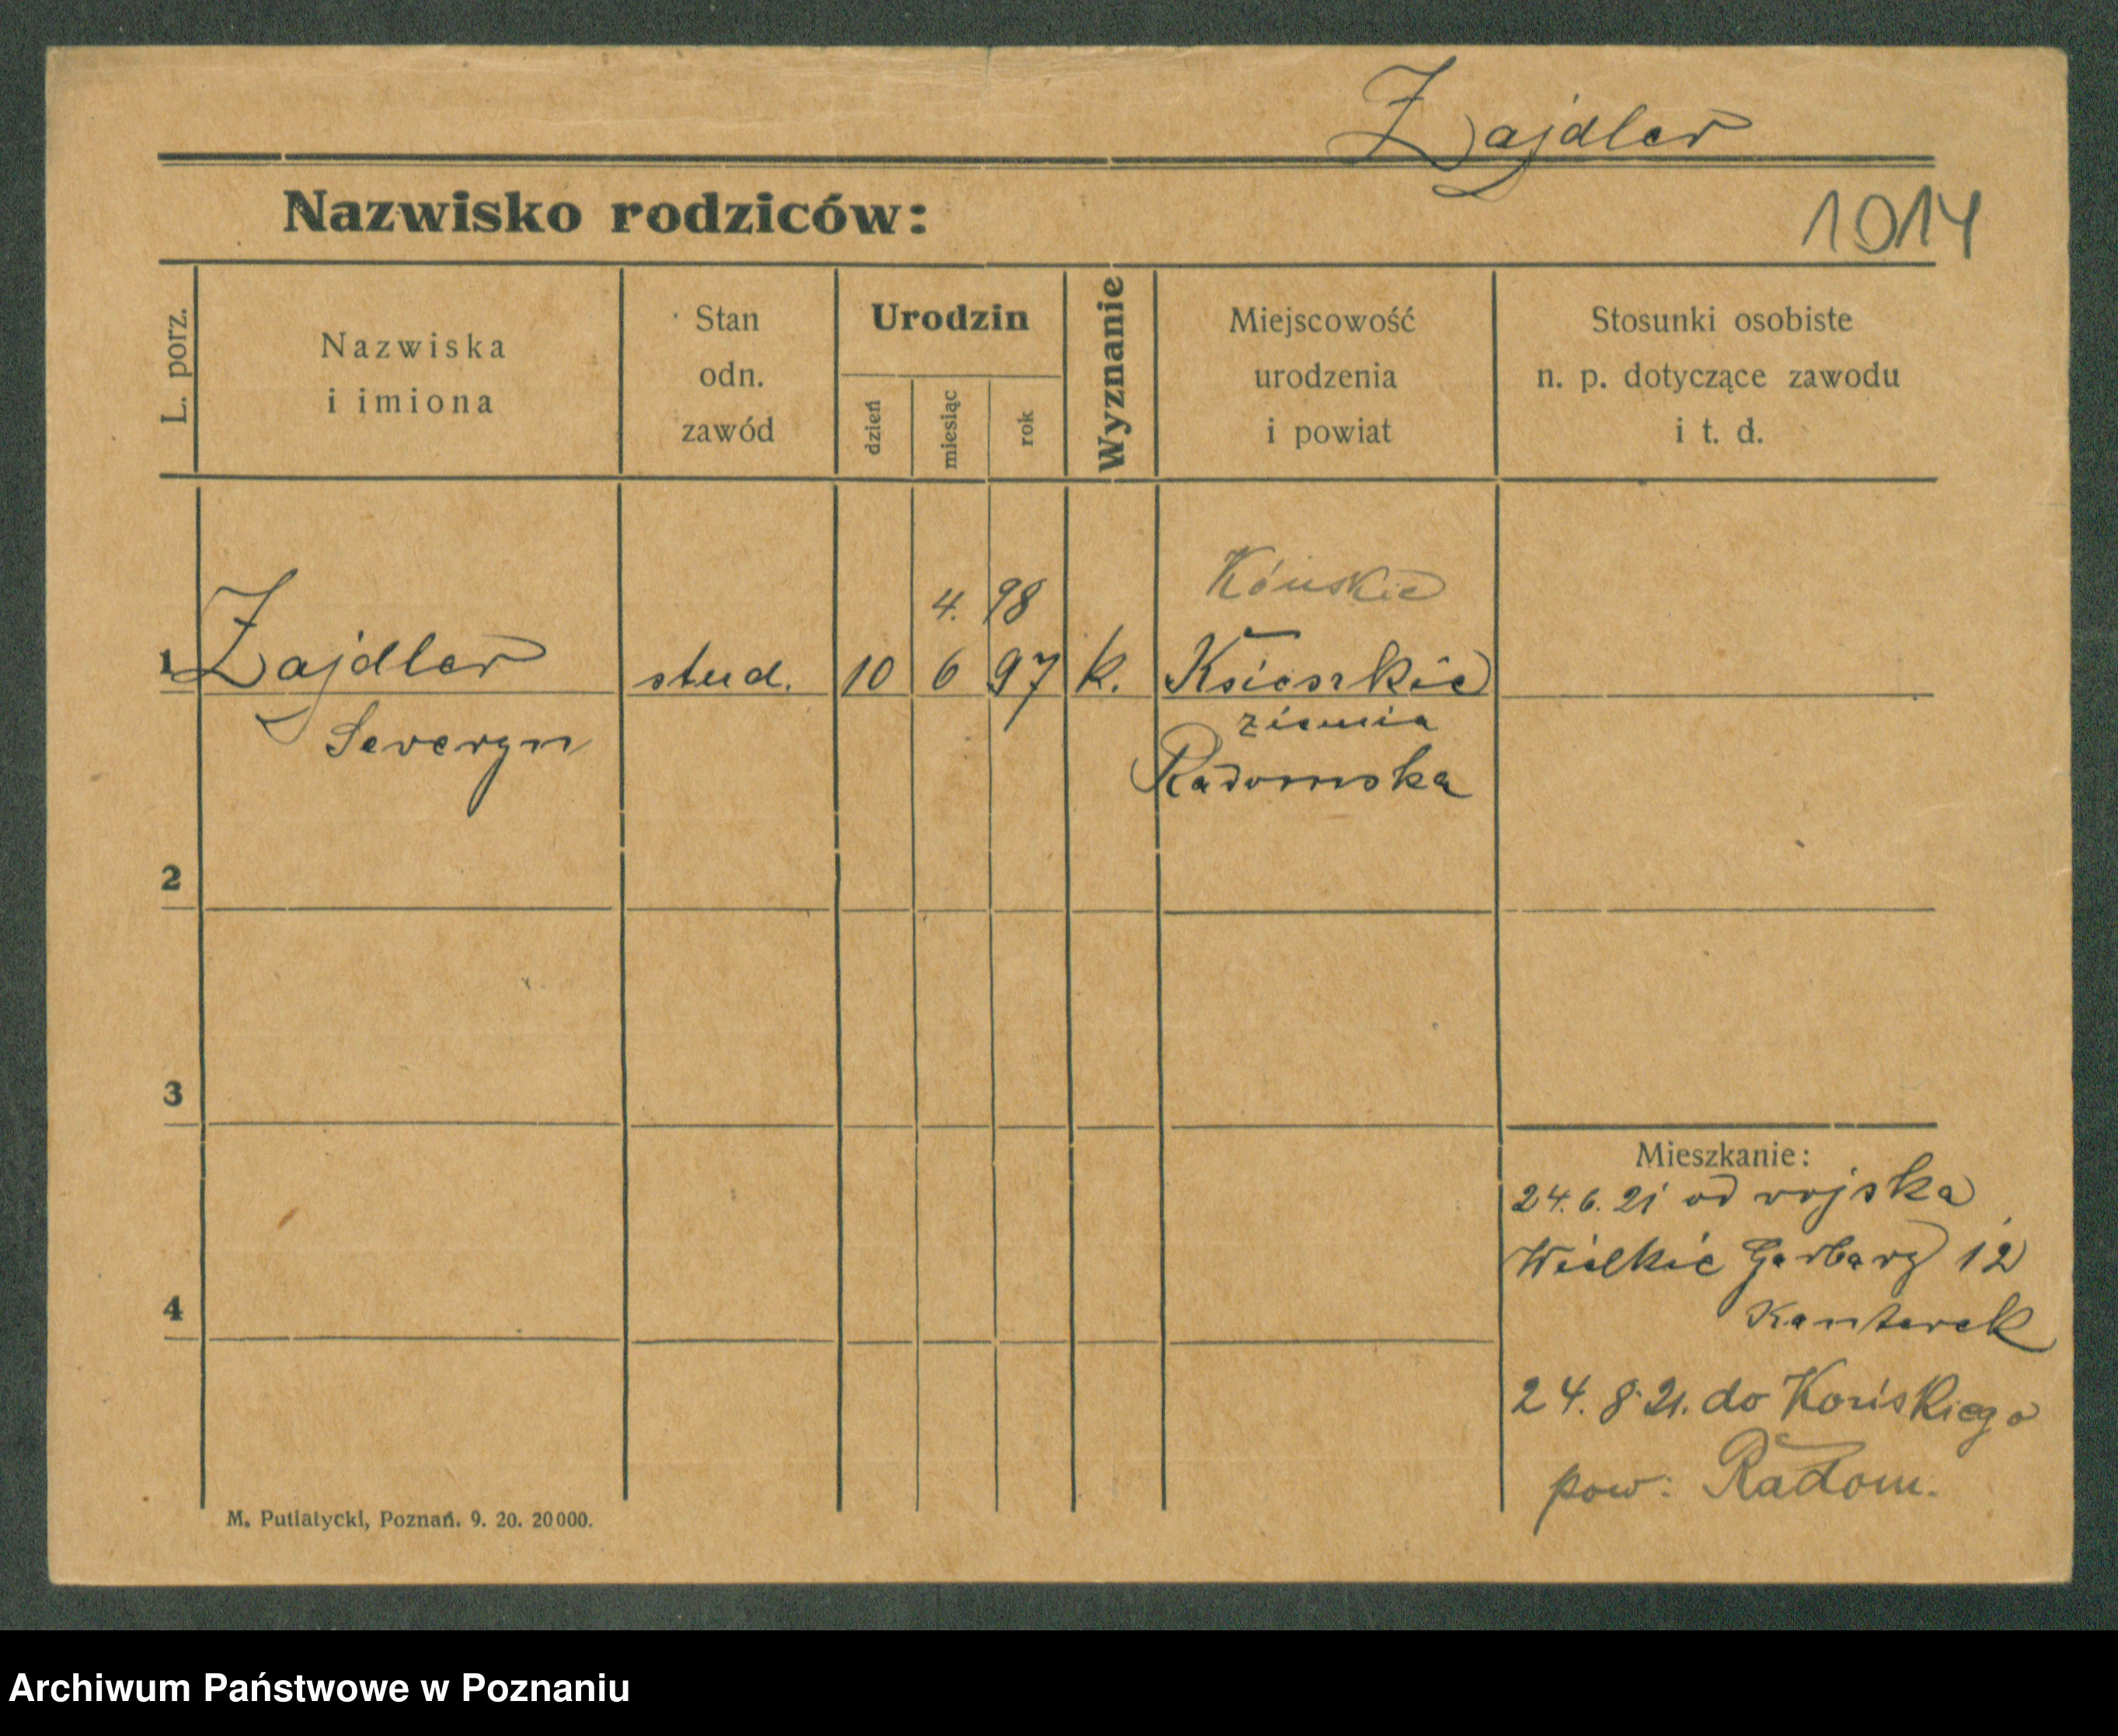 Zajdler
Nazwisko rodziców:
1014
L. porz.
Nazwiska
i imiona
Stan
odn.
zawód
Urodzin
dzień
miesiąc
rok
Wyznanie
Miejscowość
urodzenia
i powiat
Stosunki osobiste
n. p. dotyczące zawodu
i t. d.
4. 98 Kóuskie
1 Zajdler stud. 10 6 97 k.
ziemia
Seweryn Radomska
2
3
4
Mieszkanie:
24.6.21 od wojska
Wielkie Garbary 12
Kanterek
24.8.21. do Końskiego
pow: Radom.
M. Putiatycki, Poznań. 9. 20. 20000.
Archiwum Państwowe w Poznaniu